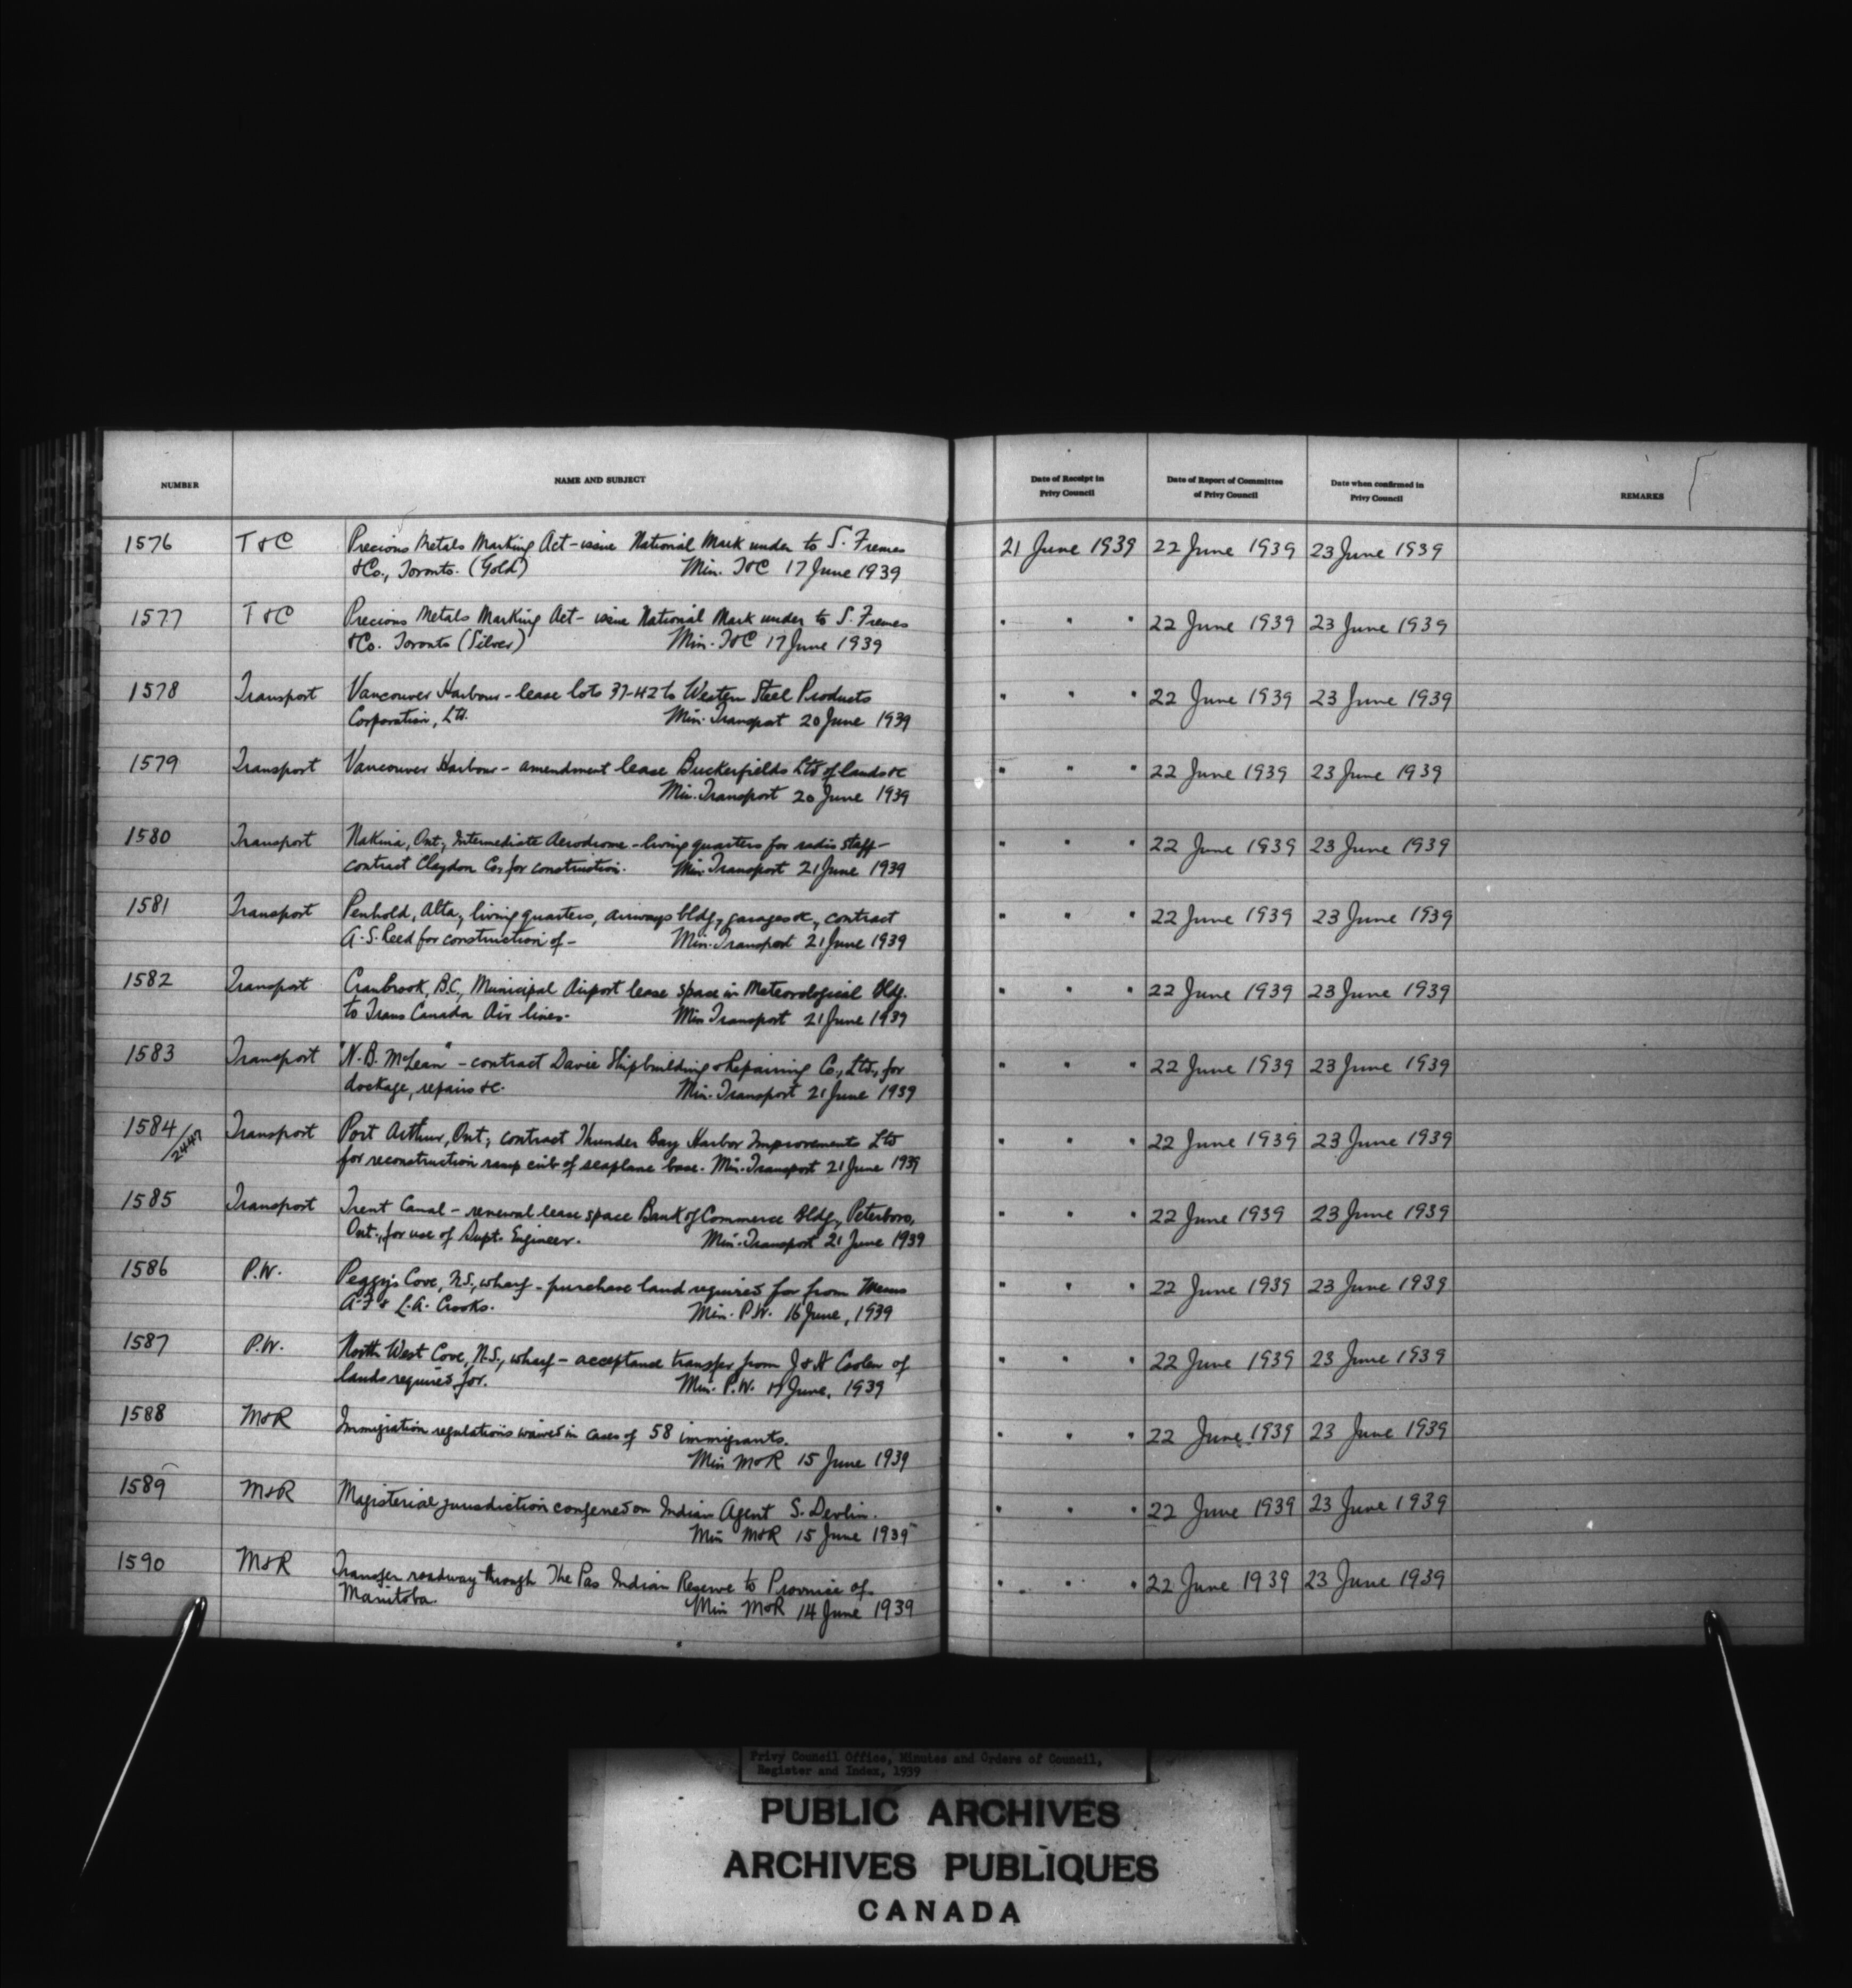 NUMBER NAME AND SUBJECT Date of Receipt in Privy Council Date of Report of Committee of Privy Council Date when confirmed in Privy Council REMARKS
1576 T&C Precious Metals Marking Act - issue National Mark under to S. Fremes 21 June 1939 22 June 1939 23 June 1939
&Co., Toronto. (Gold) Min. T&C 17 June 1939
1577 T&C Precious Metals Marking Act - issue National Mark under to S. Fremes " " " 22 June 1939 23 June 1939
&Co. Toronto (Silver) Min. T&C 17 June 1939
1578 Transport Vancouver Harbour - lease lots 37-42 to Western Steel Products " " " 22 June 1939 23 June 1939
Corporation, Ltd. Min. Transport 20 June 1939
1579 Transport Vancouver Harbour - amendment lease Buckerfields Ltd of lands &c " " " 22 June 1939 23 June 1939
Min. Transport 20 June 1939
1580 Transport Nakina, Ont., Intermediate Aerodrome - living quarters for radio staff - " " " 22 June 1939 23 June 1939
contract Claydon Co. for construction. Min Transport 21 June 1939
1581 Transport Penhold, Alta., living quarters, airways bldg., garages &c., contract " " " 22 June 1939 23 June 1939
A. S. Reed for construction of - Min. Transport 21 June 1939
1582 Transport Cranbrook, B.C., Municipal Airport lease space in Meteorological Bldg. " " " 22 June 1939 23 June 1939
to Trans Canada Air lines. Min Transport 21 June 1939
1583 Transport "N. B. McLean" - contract Davie Shipbuilding & Repairing Co., Ltd., for " " " 22 June 1939 23 June 1939
dockage, repairs &c. Min. Transport 21 June 1939
1584/2447 Transport Port Arthur, Ont., contract Thunder Bay Harbor Improvements Ltd " " " 22 June 1939 23 June 1939
for reconstruction ramp crib of seaplane base. Min. Transport 21 June 1939
1585 Transport Trent Canal - renewal lease space Bank of Commerce Bldg., Peterboro, " " " 22 June 1939 23 June 1939
Ont., for use of Supt. Engineer. Min. Transport 21 June 1939
1586 P.W. Peggy's Cove, N.S., wharf - purchase land required for from Messrs " " " 22 June 1939 23 June 1939
A.F & L.A. Crooks. Min. P.W. 16 June, 1939
1587 P.W. North West Cove, N.S., wharf - acceptance transfer from J & H Coolen of " " " 22 June 1939 23 June 1939
lands required for. Min. P.W. June, 1939
1588 M&R Immigration regulations waived in cases of 58 immigrants. " " " 22 June 1939 23 June 1939
Min M&R 15 June 1939
1589 M&R Magisterial jurisdiction conferred on Indian Agent S. Devlin. " " " 22 June 1939 23 June 1939
Min M&R 15 June 1939
1590 M&R Transfer roadway through The Pas Indian Reserve to Province of " " " 22 June 1939 23 June 1939
Manitoba Min M&R 14 June 1939
Privy Council Office, Minutes and Orders of Council,
Register and Index, 1939
PUBLIC ARCHIVES
ARCHIVES PUBLIQUES
CANADA